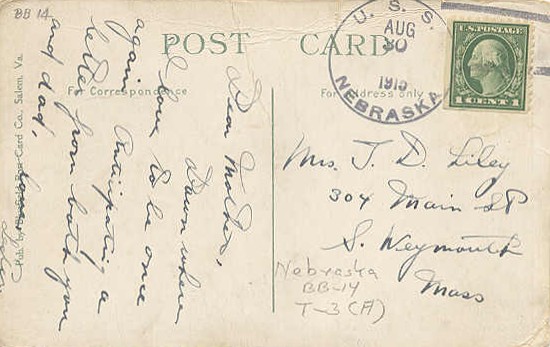 BB 14
POST CARD
For Correspondence
For Address only
U. S. S.
AUG
30
1915
NEBRASKA
U.S. POSTAGE
1 CENT 1
Dear Mother,
Down where
I love to be once
again. Anticipating a
letter from both you
and dad,
Mrs. J. D. Liley
304 Main St
S. Weymouth
Mass
Nebraska
BB-14
T-3(A)
Post Card Co., Salem, Va.